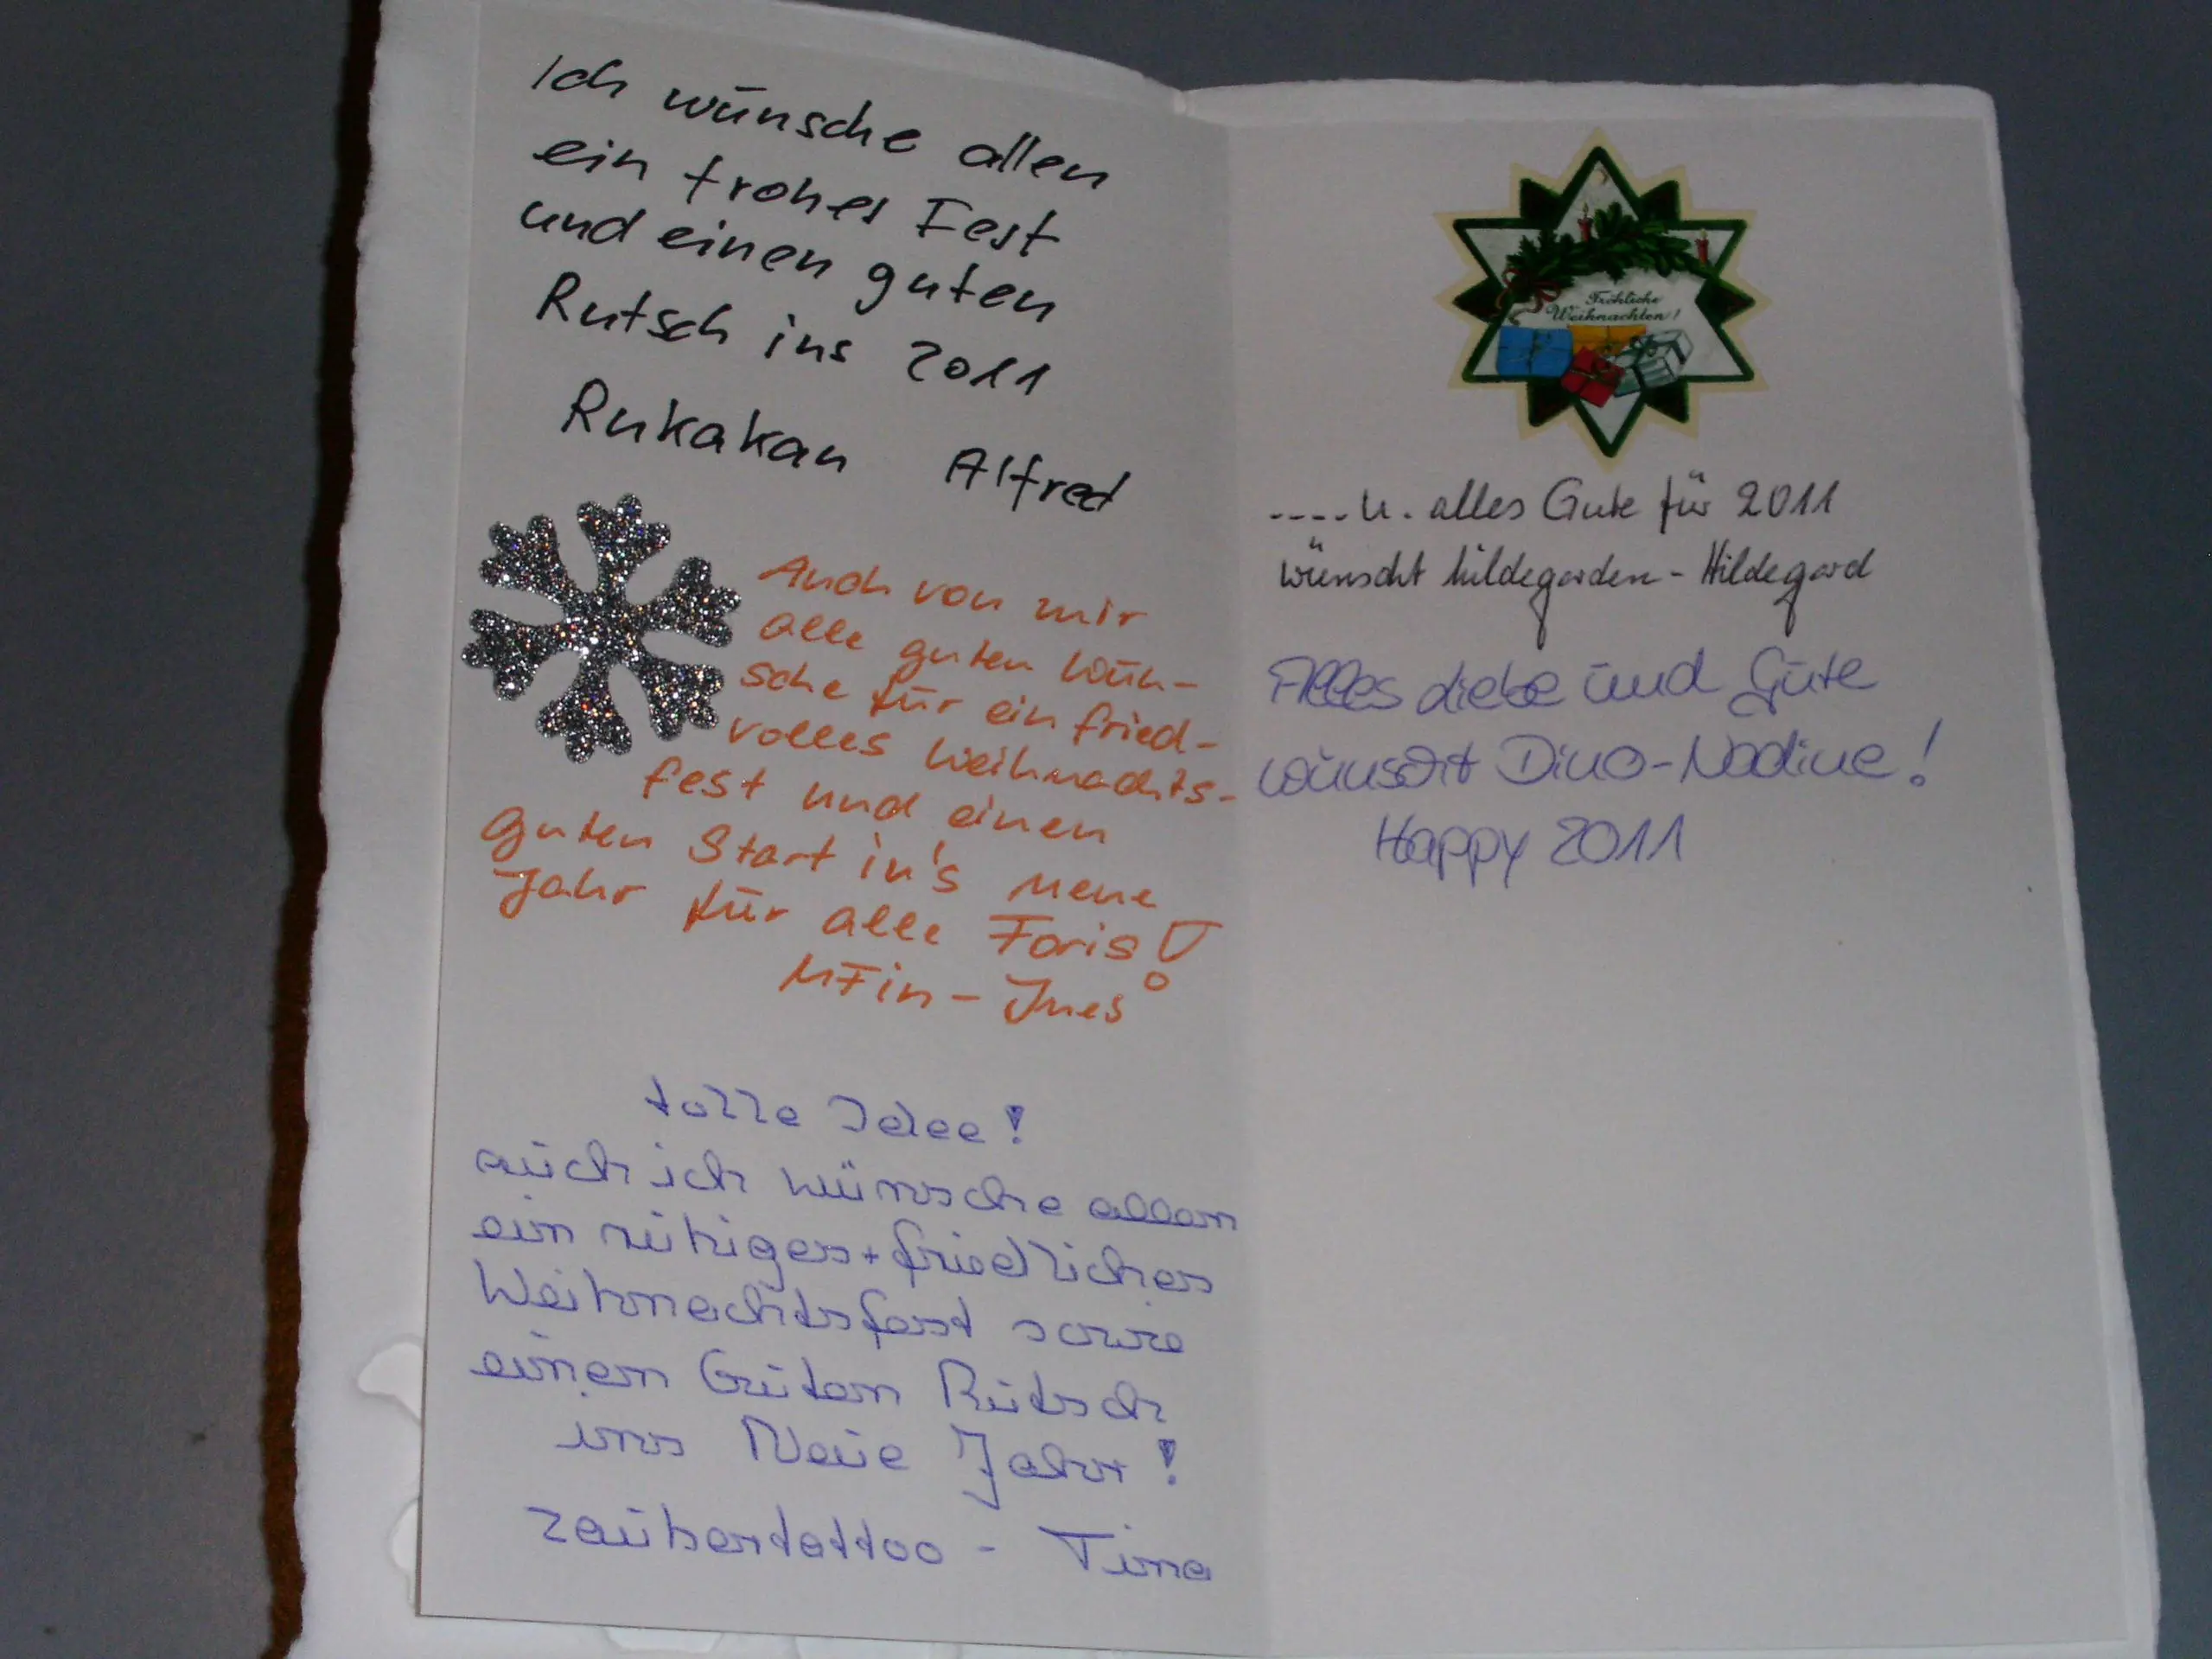 Ich wünsche allen
ein frohes Fest
und einen guten
Rutsch ins 2011
Rukakan Alfred
Auch von mir
alle guten Wün-
sche für ein fried-
volles Weihnachts-
fest und einen
guten Start in's neue
Jahr für alle Foris!
MFin - Ines
tolle Idee!
auch ich wünsche allen
ein ruhiges + friedliches
Weihnachtsfest sowie
einen Guten Rutsch
ins Neue Jahr!
zaubertattoo - Tina
Fröhliche
Weihnachten!
....u. alles Gute für 2011
wünscht hildegarden - Hildegard
Alles Liebe und Gute
wünscht Dino-Nadine!
Happy 2011